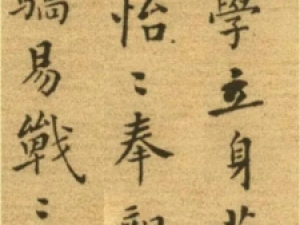 學立身
怡〻奉
驕易戰〻